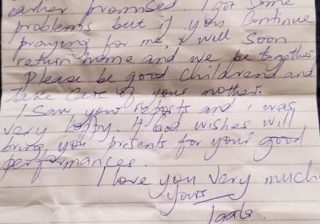 earlier promised. I got some
problems but if you continue
praying for me, I will soon
return home and we be together
Please be good childrend and
take care of your mother.
I saw your reports and I was
very happy. If God wishes will
bring you presents for your good
performances.
I love you very much.
Yours